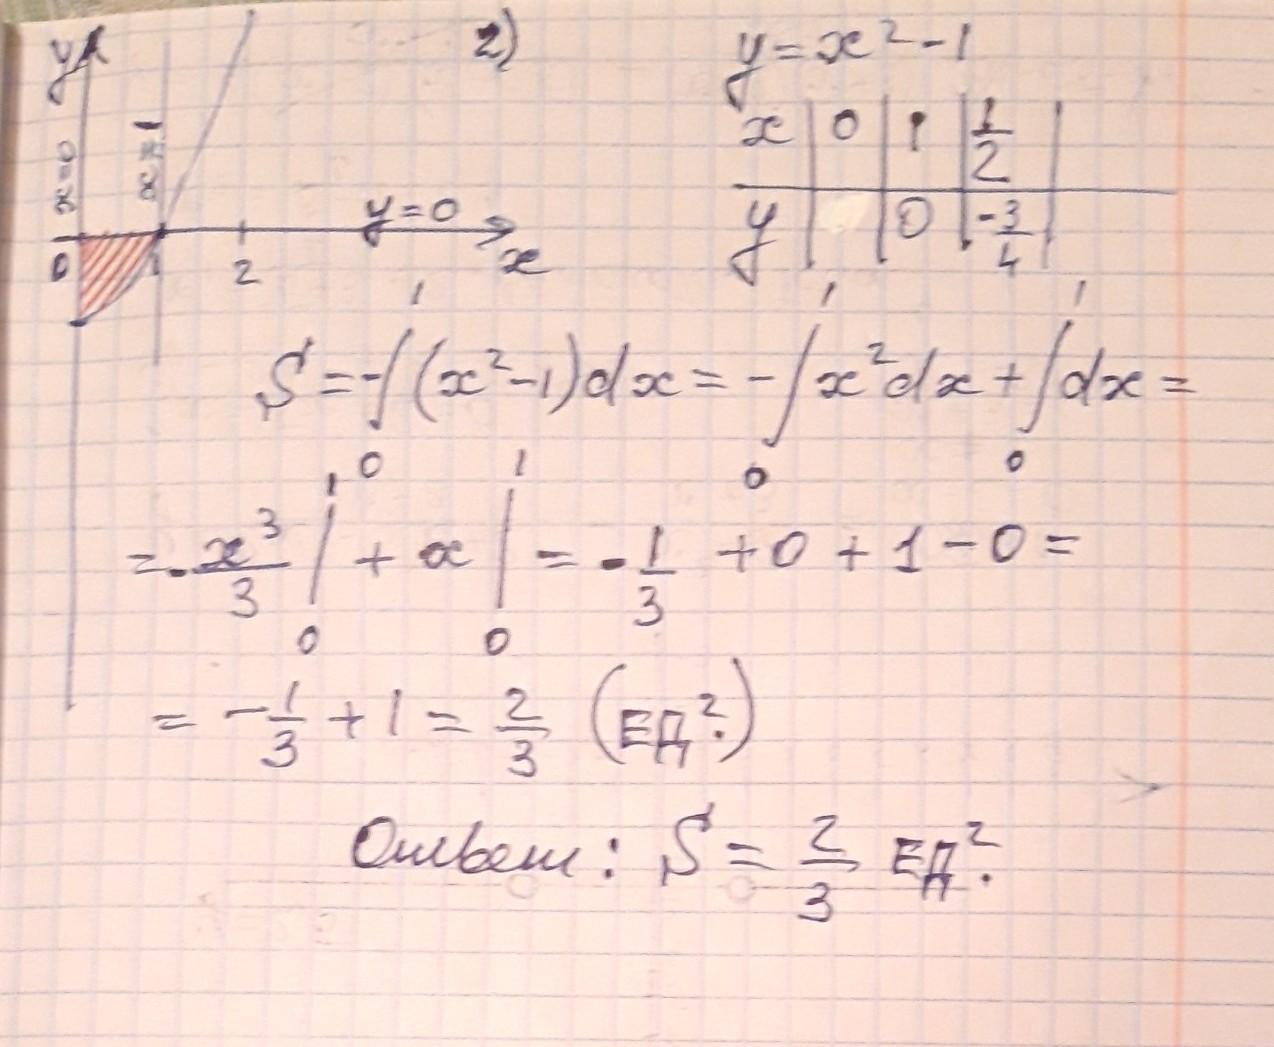 2)
y = x² - 1
x | 0 | 1 | 1/2
y | | 0 | -3/4
y
x=0
x=1
y=0
0 1 2 x
S = -∫₀¹ (x² - 1)dx = -∫₀¹ x²dx + ∫₀¹ dx =
= - x³/3 |₀¹ + x |₀¹ = - 1/3 + 0 + 1 - 0 =
= - 1/3 + 1 = 2/3 (ЕД².)
Ответ: S = 2/3 ЕД².